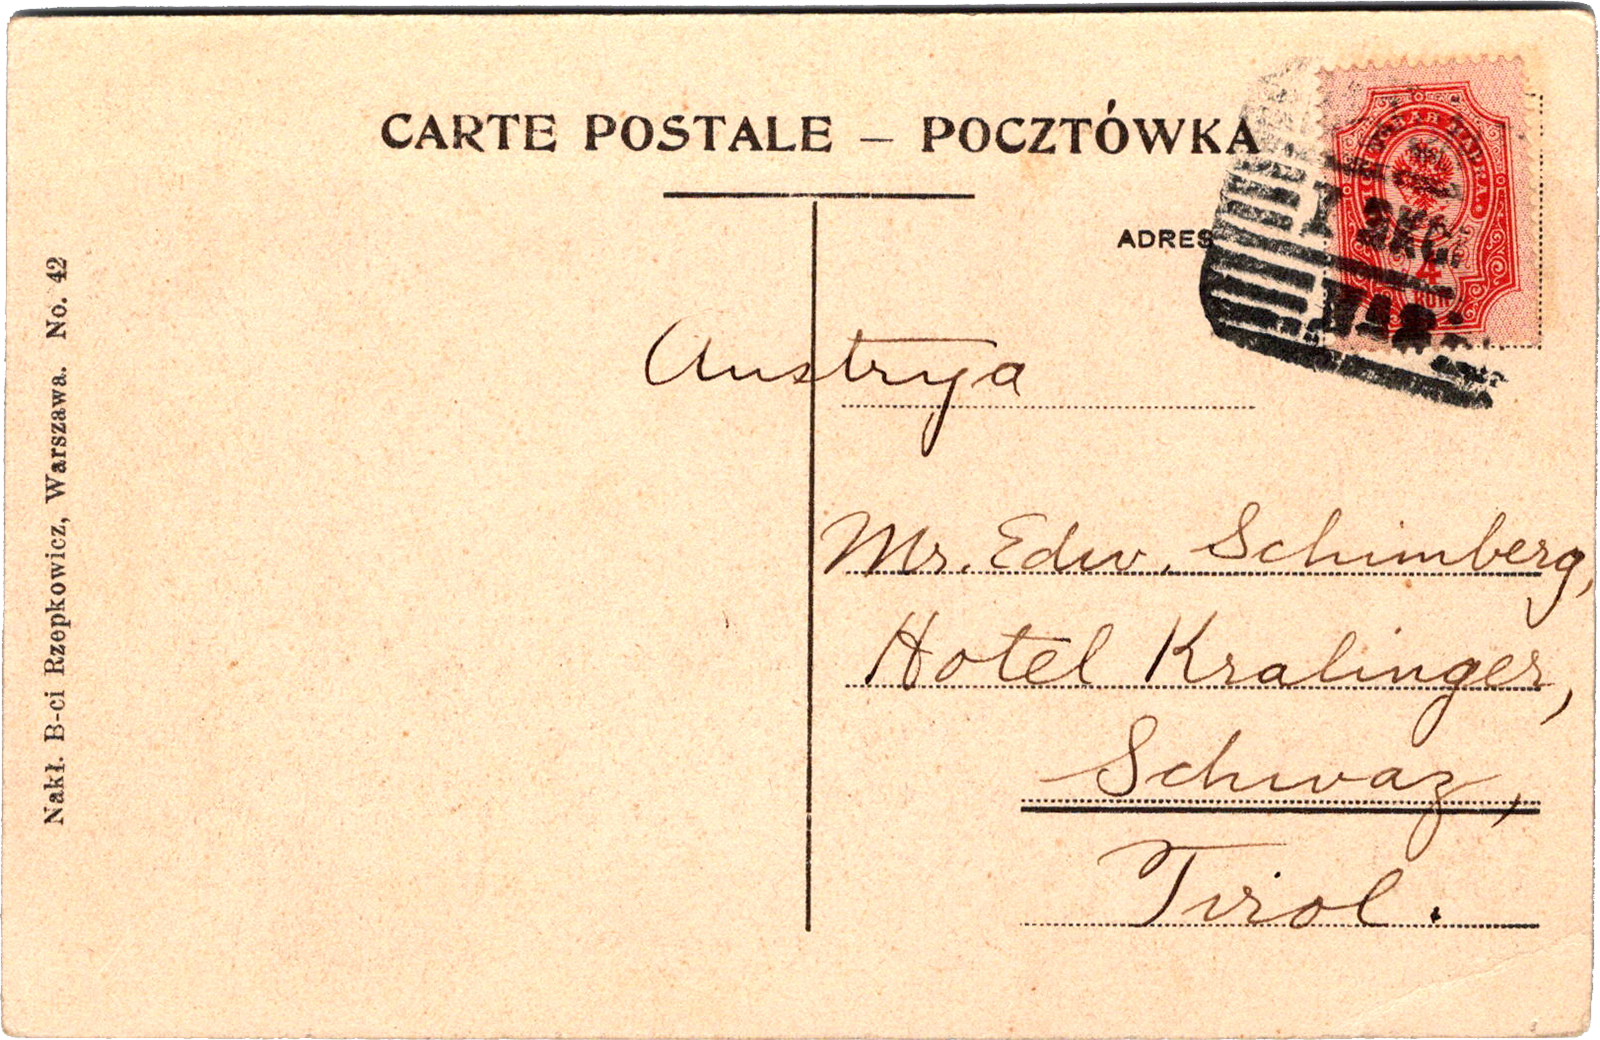 CARTE POSTALE – POCZTÓWKA
ADRES
Austrya
Mr. Edw. Schimberg,
Hotel Kralinger,
Schwaz,
Tirol.
Nakł. B-ci Rzepkowicz, Warszawa. No. 42
4